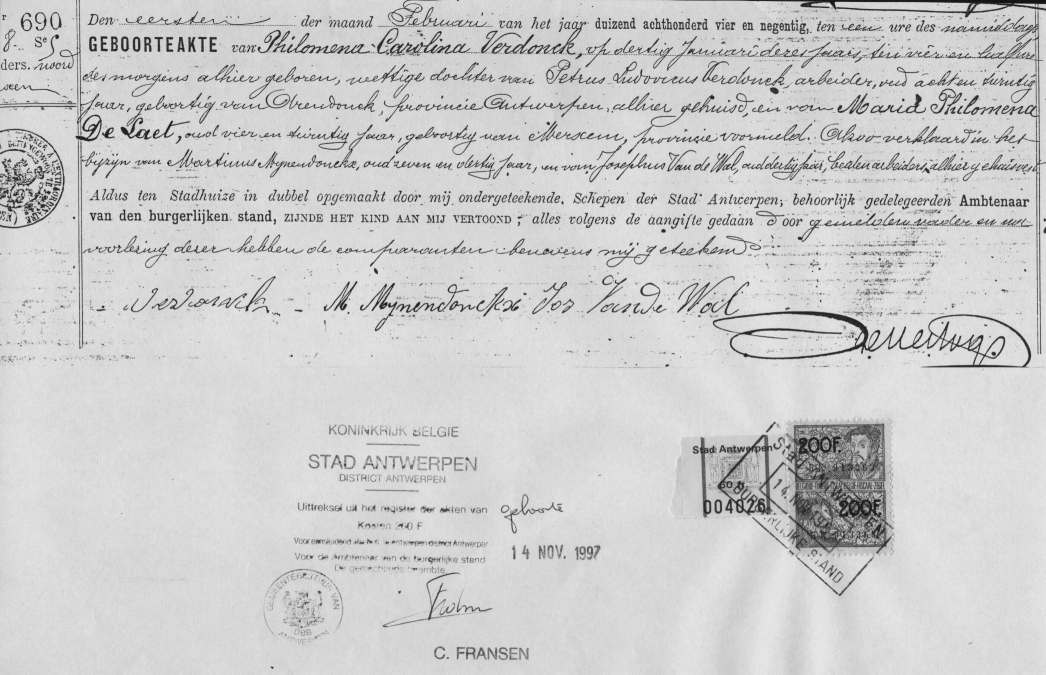 690
8. Se 5
ders. noord
Den eersten der maand Februari van het jaar duizend achthonderd vier en negentig, ten een ure des namiddags
GEBOORTEAKTE van Philomena Carolina Verdonck, op dertig Januari dezes jaars, ten vier en half ure
des morgens alhier geboren, wettige dochter van Petrus Ludovicus Verdonck, arbeider, oud acht en twintig
jaar, geboortig van Arendonck, provincie Antwerpen, alhier gehuisd, en van Maria Philomena
De Laet, oud vier en twintig jaar, geboortig van Merxem, provincie voormeld. Alzoo verklaard in het
bijzijn van Martinus Mynendonckx, oud zeven en dertig jaar, en van Josephus Van de Wal, oud dertig jaar, beiden arbeiders, alhier gehuisvest
Aldus ten Stadhuize in dubbel opgemaakt door mij ondergeteekende, Schepen der Stad Antwerpen, behoorlijk gedelegeerden Ambtenaar
van den burgerlijken stand, ZIJNDE HET KIND AAN MIJ VERTOOND; alles volgens de aangifte gedaan door gemelden vader en na
voorlezing dezer hebben de comparanten benevens mij geteekend.
M. Mynendonckx Jos Van de Wal
KONINKRIJK BELGIE
STAD ANTWERPEN
DISTRICT ANTWERPEN
Uittreksel uit het register der akten van geboorte
Kosten 200 F
Voor de Ambtenaar van de burgerlijke stand
De gemachtigde beambte,
14 NOV. 1997
GEMEENTEBESTUUR VAN
ANTWERPEN
C. FRANSEN
Stad Antwerpen
004026
200F.
200F.
STAD ANTWERPEN
BURGERLIJKE STAND